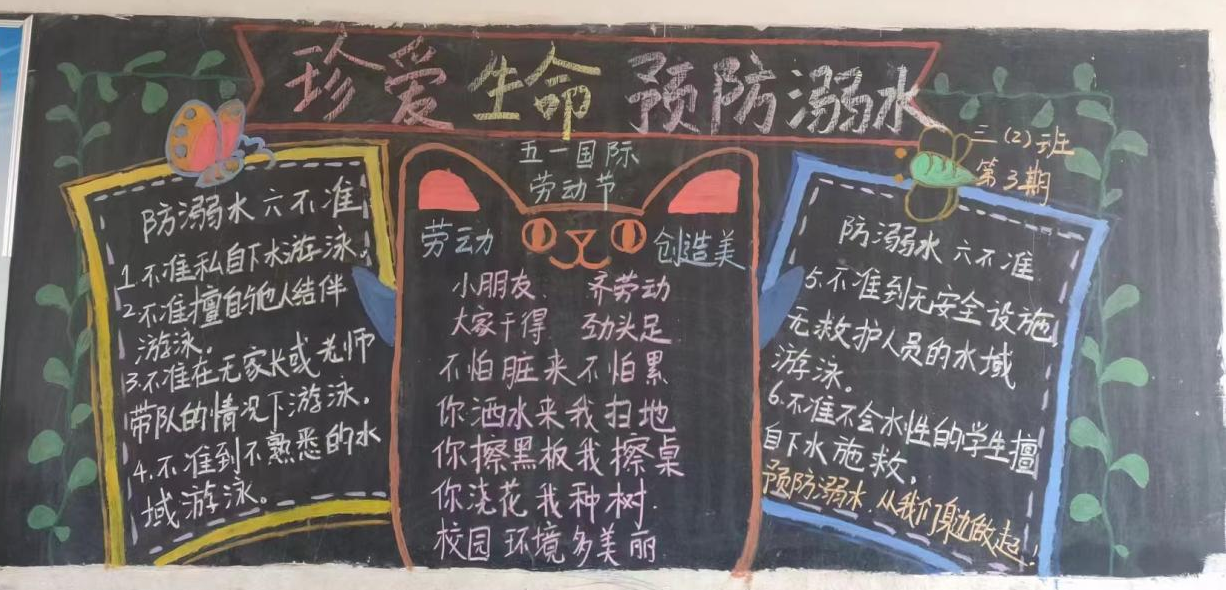 珍爱生命 预防溺水
三(2)班
第3期
防溺水六不准
1.不准私自下水游泳。
2.不准擅自与他人结伴
游泳。
3.不准在无家长或老师
带队的情况下游泳。
4.不准到不熟悉的水
域游泳。
五一国际
劳动节
劳动 创造美
小朋友 齐劳动
大家干得 劲头足
不怕脏来不怕累
你洒水来我扫地
你擦黑板我擦桌
你浇花我种树
校园环境多美丽
防溺水六不准
5.不准到无安全设施
无救护人员的水域
游泳。
6.不准不会水性的学生擅
自下水施救。
预防溺水,从我们身边做起!